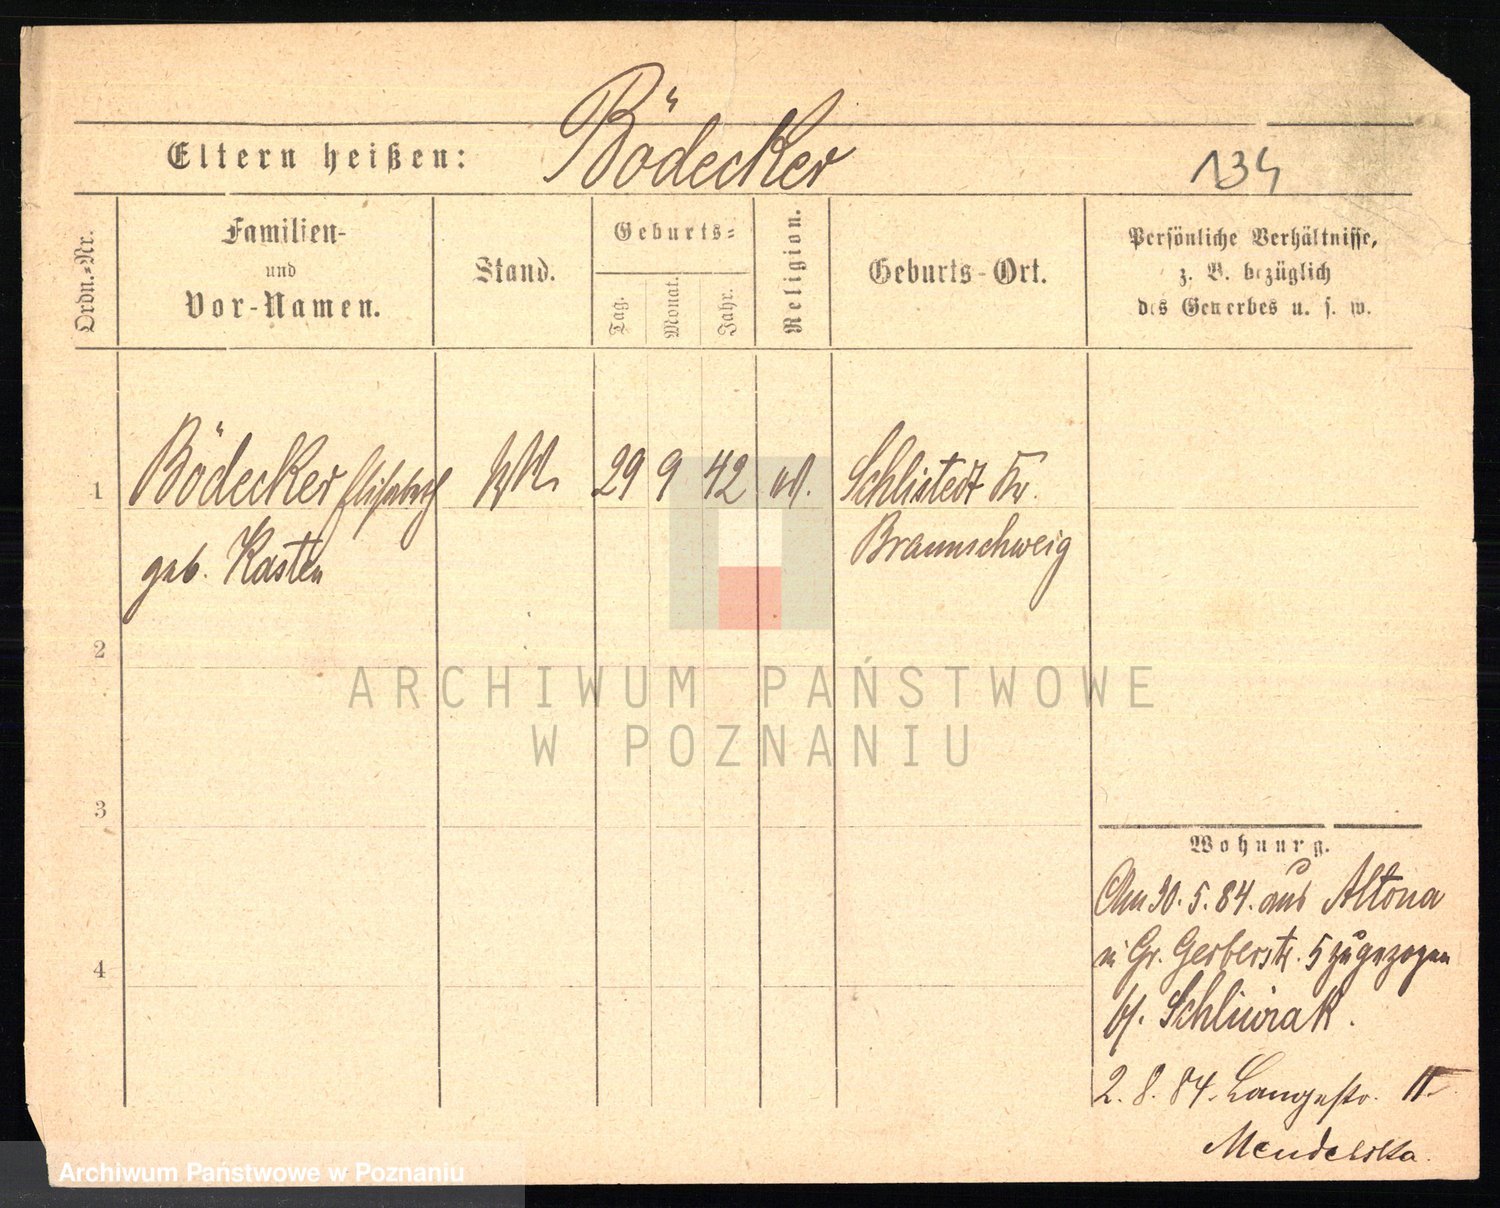 Bödecker
Eltern heißen:
134
Ordn.-Nr.
Familien-
und
Vor-Namen.
Stand.
Geburts-
Tag.
Monat.
Jahr.
Religion.
Geburts-Ort.
Persönliche Verhältnisse,
z. B. bezüglich
des Gewerbes u. s. w.
1 Bödecker Elisabeth 29 9 42 Schlistedt Kr.
geb. Kasten
Braunschweig
2
ARCHIWUM PAŃSTWOWE
W POZNANIU
3
Wohnung.
Am 30. 5. 84. aus Altona
n Gr. Gerberstr. 5 zugezogen
bei
2. 8. 84. Langestr.
Mendelska.
4
Archiwum Państwowe w Poznaniu